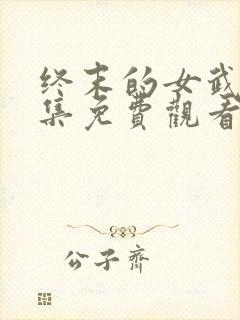 终末的女武
集免費觀看
公子齊